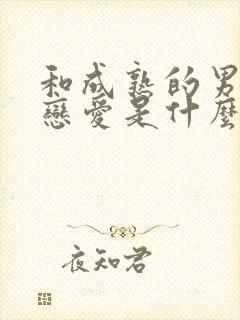 和成熟的男
戀愛是什麼
夜知君